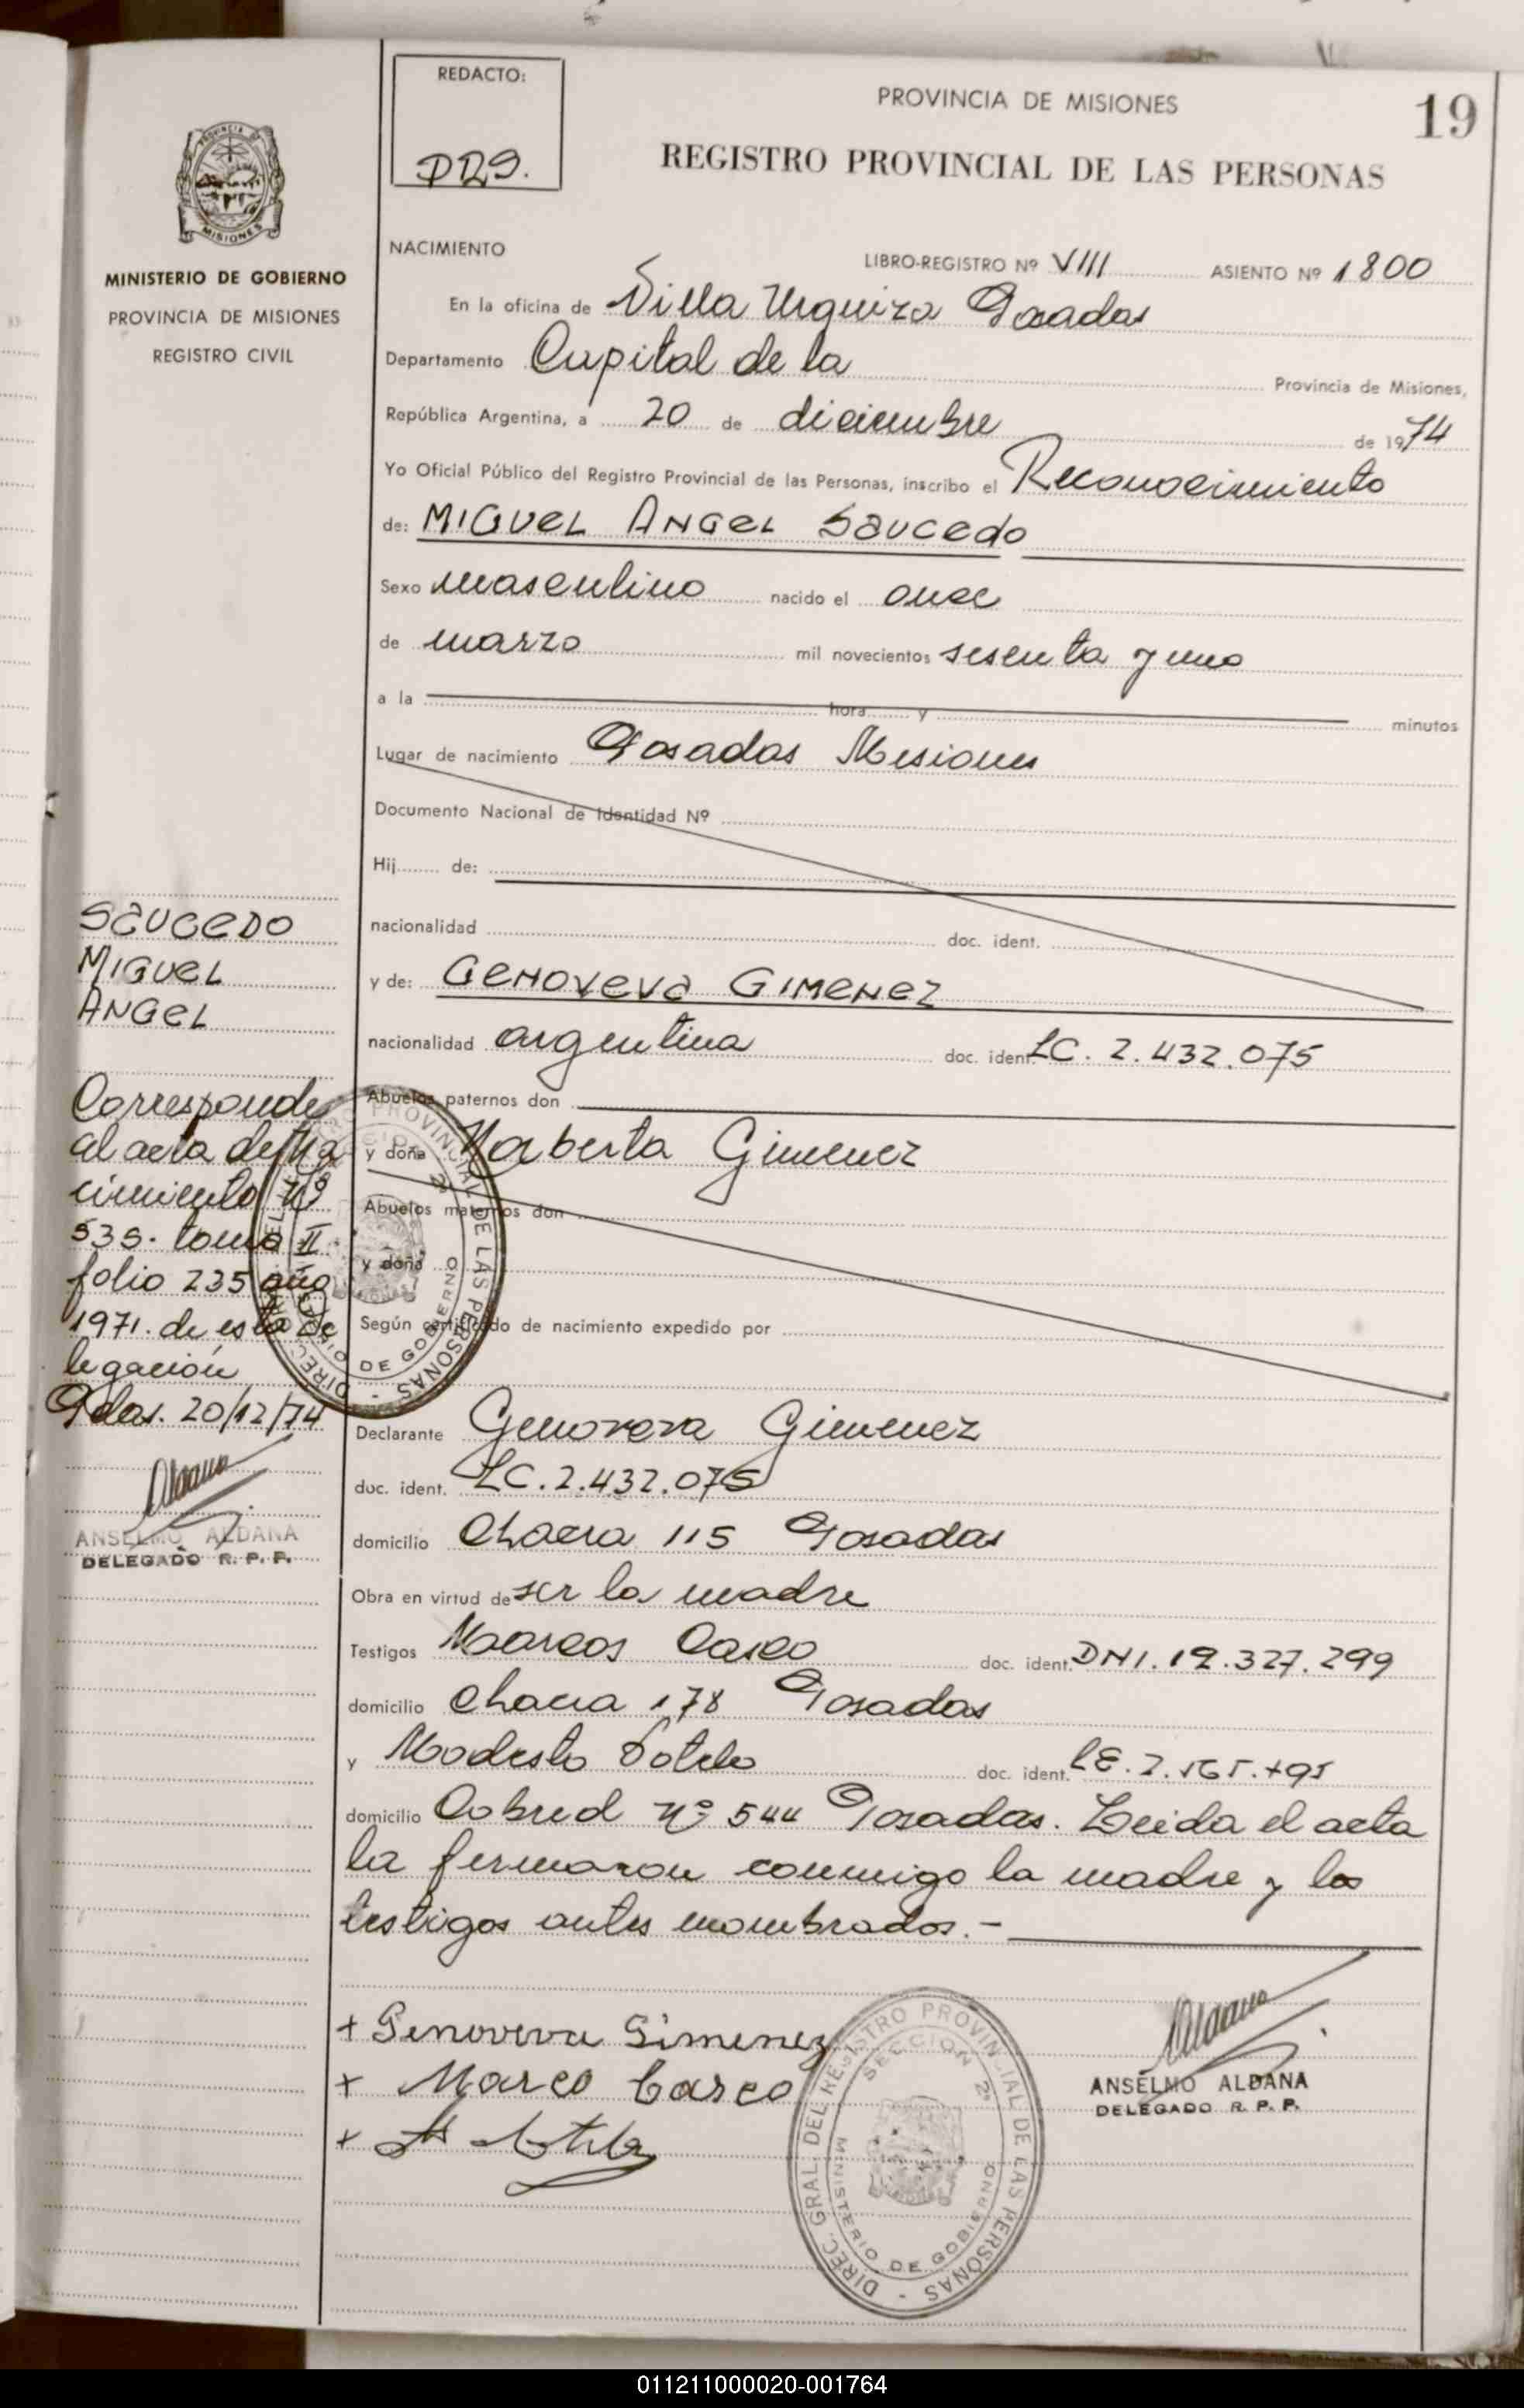 REDACTO:
PROVINCIA DE MISIONES
19
REGISTRO PROVINCIAL DE LAS PERSONAS
MISIONES
MINISTERIO DE GOBIERNO
PROVINCIA DE MISIONES
REGISTRO CIVIL
NACIMIENTO LIBRO-REGISTRO Nº VIII ASIENTO Nº 1800
En la oficina de Villa Urquiza Posadas
Departamento Capital de la Provincia de Misiones,
República Argentina, a 20 de diciembre de 1974
Yo Oficial Público del Registro Provincial de las Personas, inscribo el Reconocimiento
de: MIGUEL ANGEL SAUCEDO
Sexo masculino nacido el once
de marzo mil novecientos sesenta y uno
a la hora y minutos
Lugar de nacimiento Posadas Misiones
Documento Nacional de Identidad Nº
Hij de:
nacionalidad doc. ident.
y de: GENOVEVA GIMENEZ
nacionalidad argentina doc. ident. LC. 2.432.075
Abuelos paternos don
y doña Norberta Gimenez
Abuelos maternos don
y doña
Según certificado de nacimiento expedido por
Declarante Genoveva Gimenez
doc. ident. LC. 2.432.075
domicilio Chacra 115 Posadas
Obra en virtud de ser la madre
Testigos Marcos Casco doc. ident. DNI. 12.327.299
domicilio Chacra 178 Posadas
y Modesto Sotelo doc. ident. LE.
domicilio Cabred nº 544 Posadas. Leida el acta
la firmaron conmigo la madre y los
testigos antes nombrados.-
SAUCEDO
MIGUEL
ANGEL
Corresponde
al acta de Na
cimiento nº
535. tomo II
folio 235 año
1971. de esta De
legación
Pdas. 20/12/74
Aldana
ANSELMO ALDANA
DELEGADO R. P. P.
+ Genoveva Gimenez
+ Marco Casco
+
Aldana
ANSELMO ALDANA
DELEGADO R. P. P.
DIREC. GRAL. DEL REGISTRO PROVINCIAL DE LAS PERSONAS
SECCION 2ª
MINISTERIO DE GOBIERNO
011211000020-001764